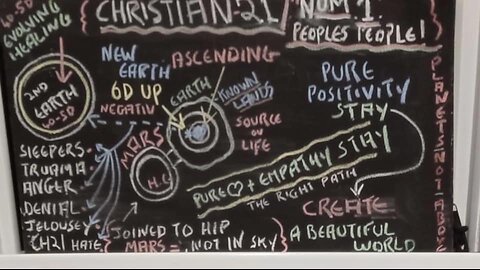 CHRISTIAN 21
NUM 1
PEOPLES PEOPLE!
40-5D
EVOLVING
HEALING
NEW
EARTH
6D UP
NEGATIV
ASCENDING
EARTH
KNOWN
LANDS
SOURCE
OV
LIFE
PURE
POSITIVITY
STAY
2ND
EARTH
40-5D
MARS
H.C
SLEEPERS
TRUAMA
ANGER
DENIAL
JELOUSEY
CH21 HATE
PURE♡ + EMPATHY STAY
THE RIGHT PATH
CREATE
A BEAUTIFUL
WORLD
JOINED TO HIP
MARS = NOT IN SKY
PLANETS NOT ABOVE